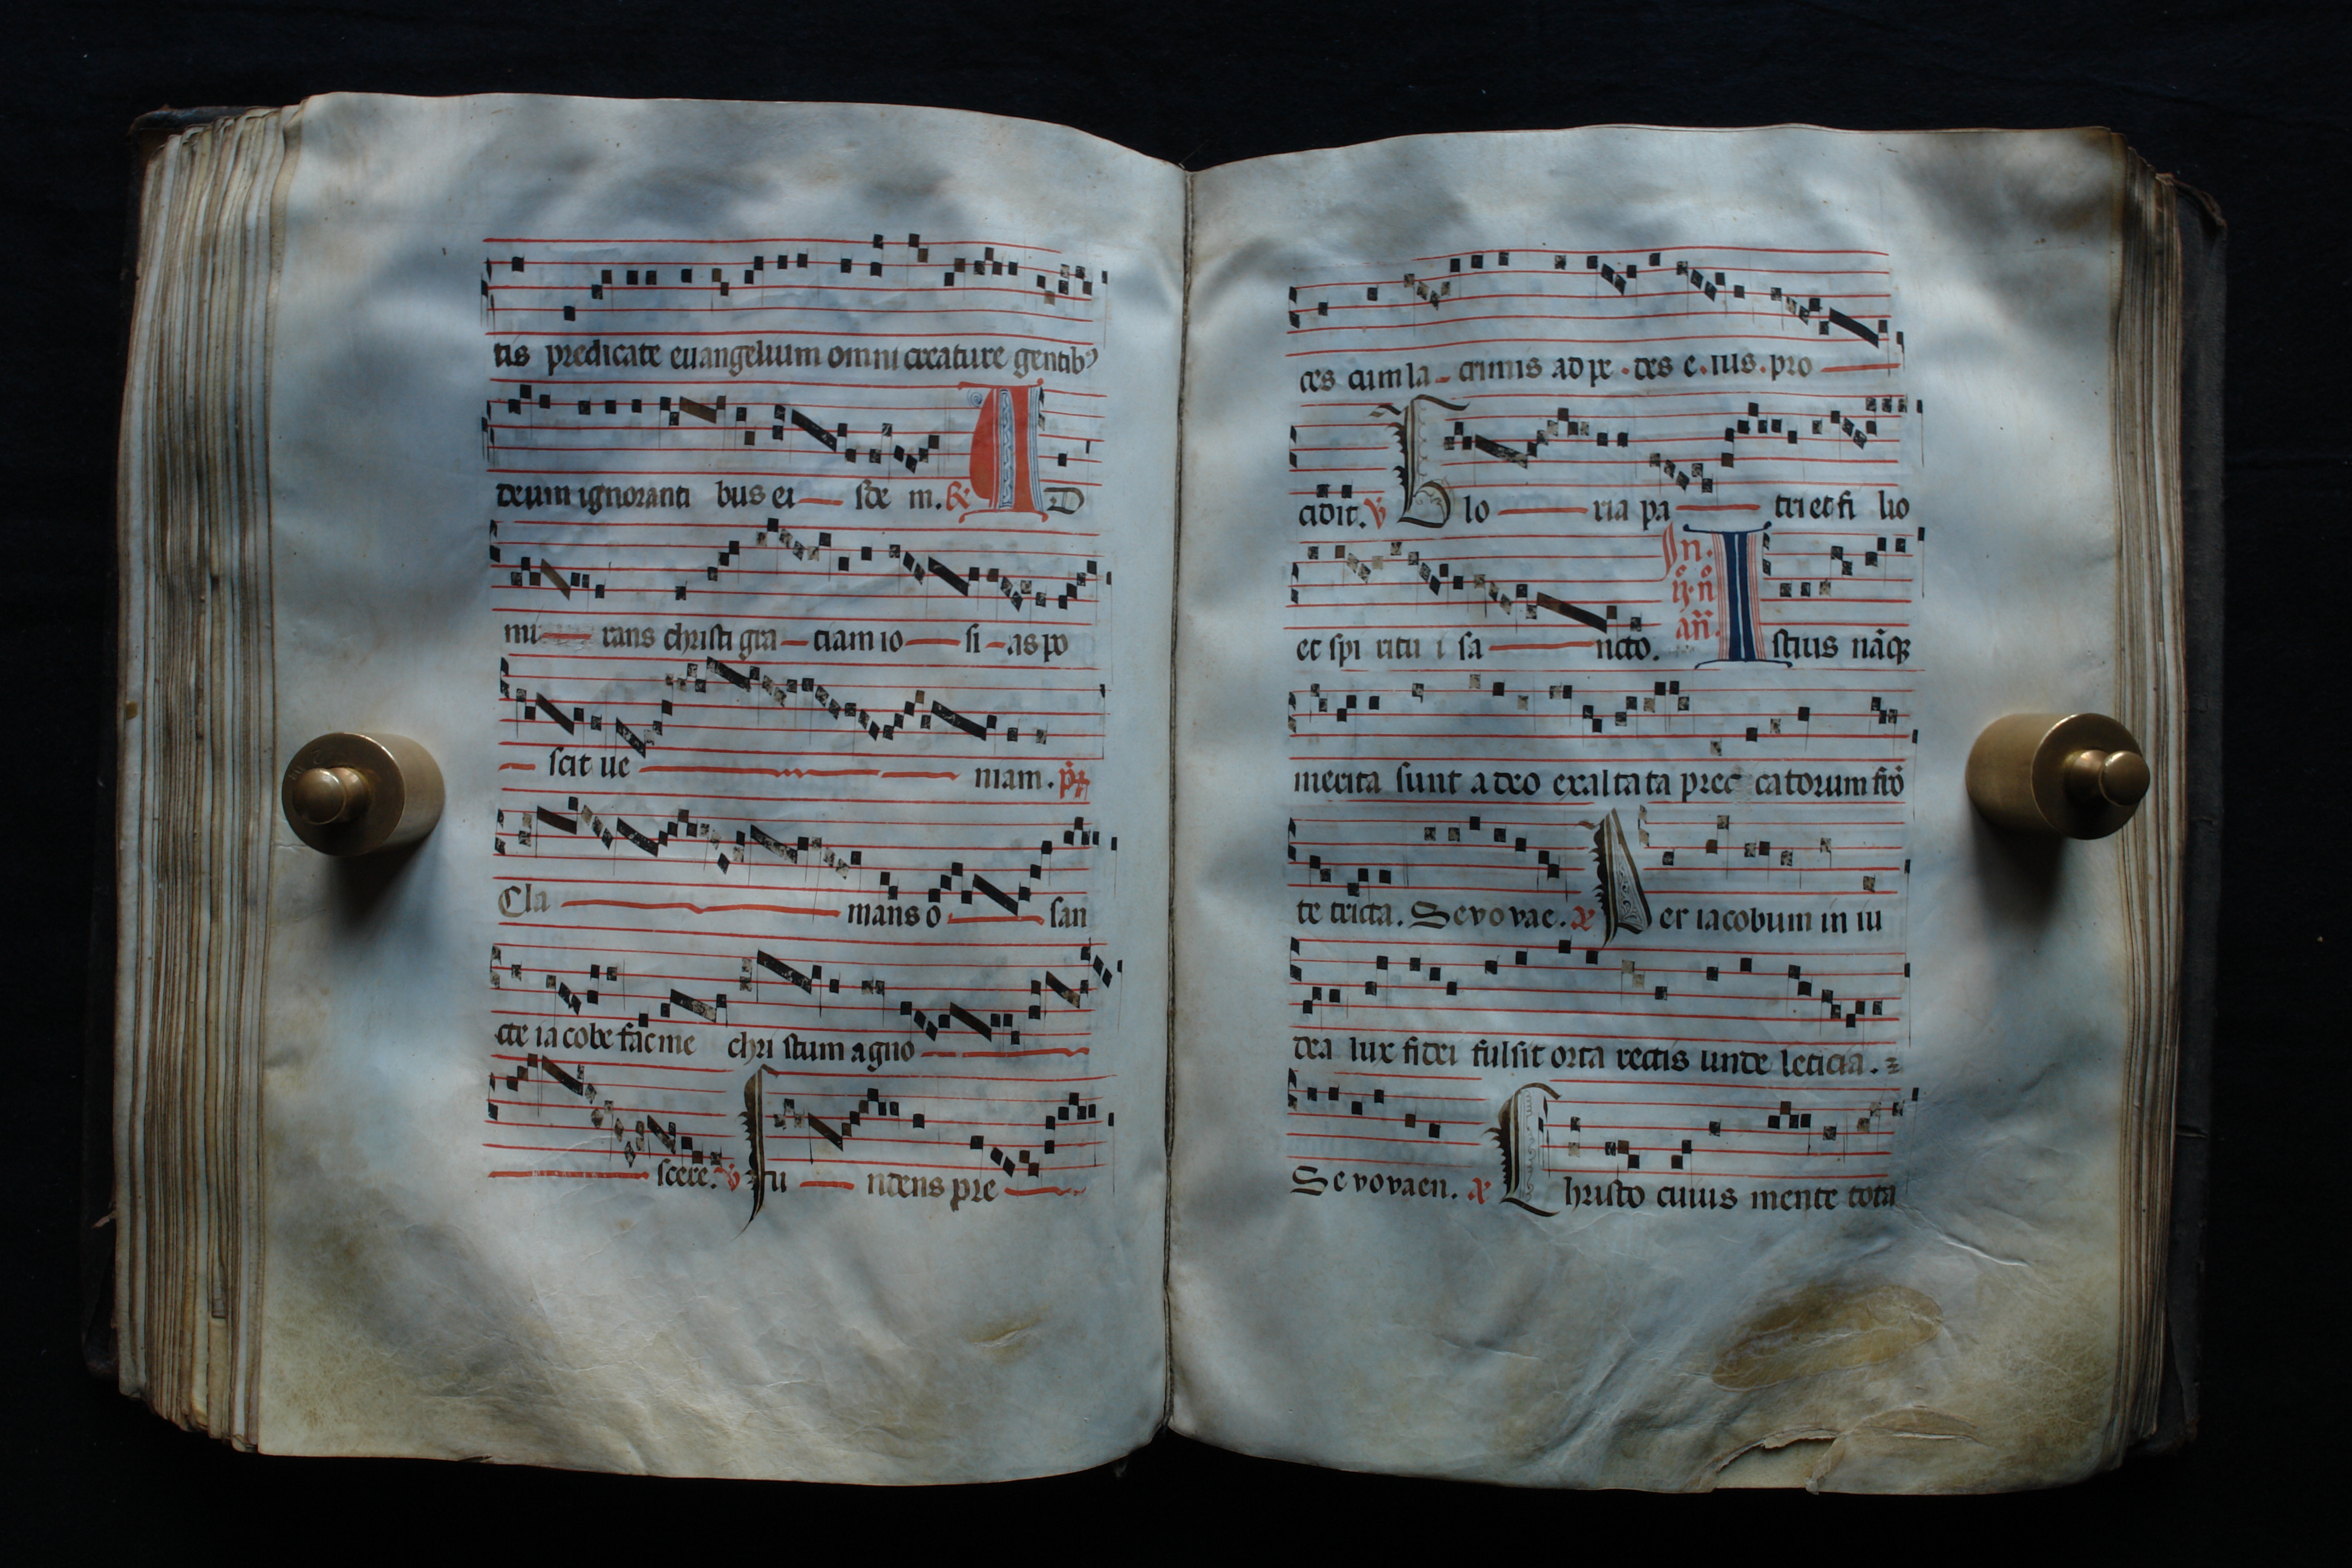 tis predicate euangelium omni creature gentibꝰ
deum ignoranti bus ei sde m. ℟ AD
mi rans christi gra ciam io si as po
scit ue niam. p̄r
Cla mans o san
cte ia cobe fac me chri stum agno
scere. ℣ Fu ndens pre
ces cum la crimis ad pe des e ius pro
cidit. ℣ Glo ria pa tri et fi lio
et spi ritu i sa ncto. In .ij. n̊ añ. Istius nāqꝫ
merita sunt adeo exaltata precatorum
te tricta. Sevovae. Per iacobum in iu
dea lux fidei fulsit orta rectis unde leticia.
Sevovaen. Christo cuius mente tota